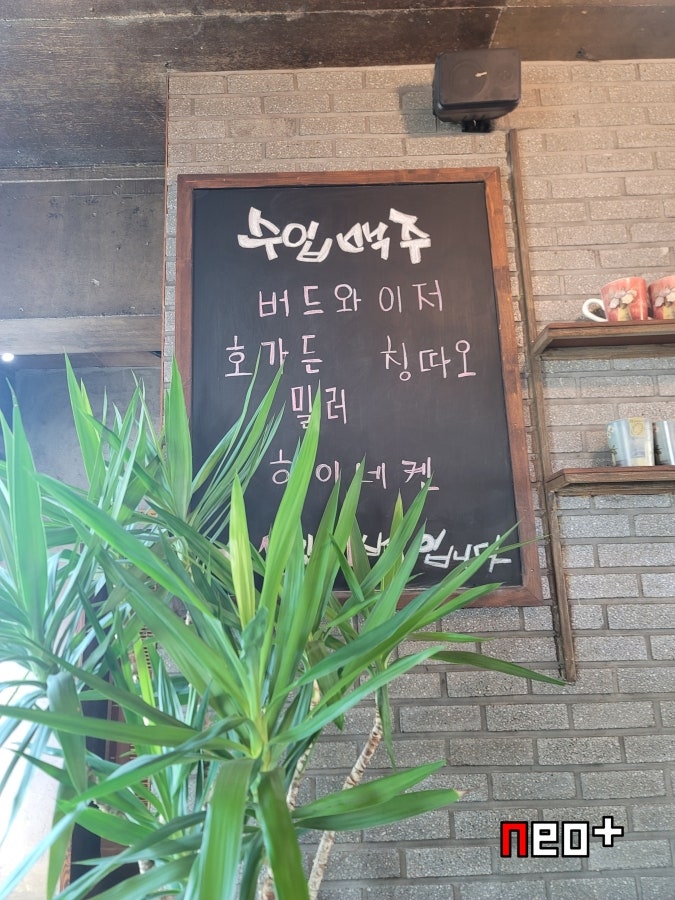 수입맥주
버드와이저
호가든 칭따오
밀러
하이네켄
입니다
neo+